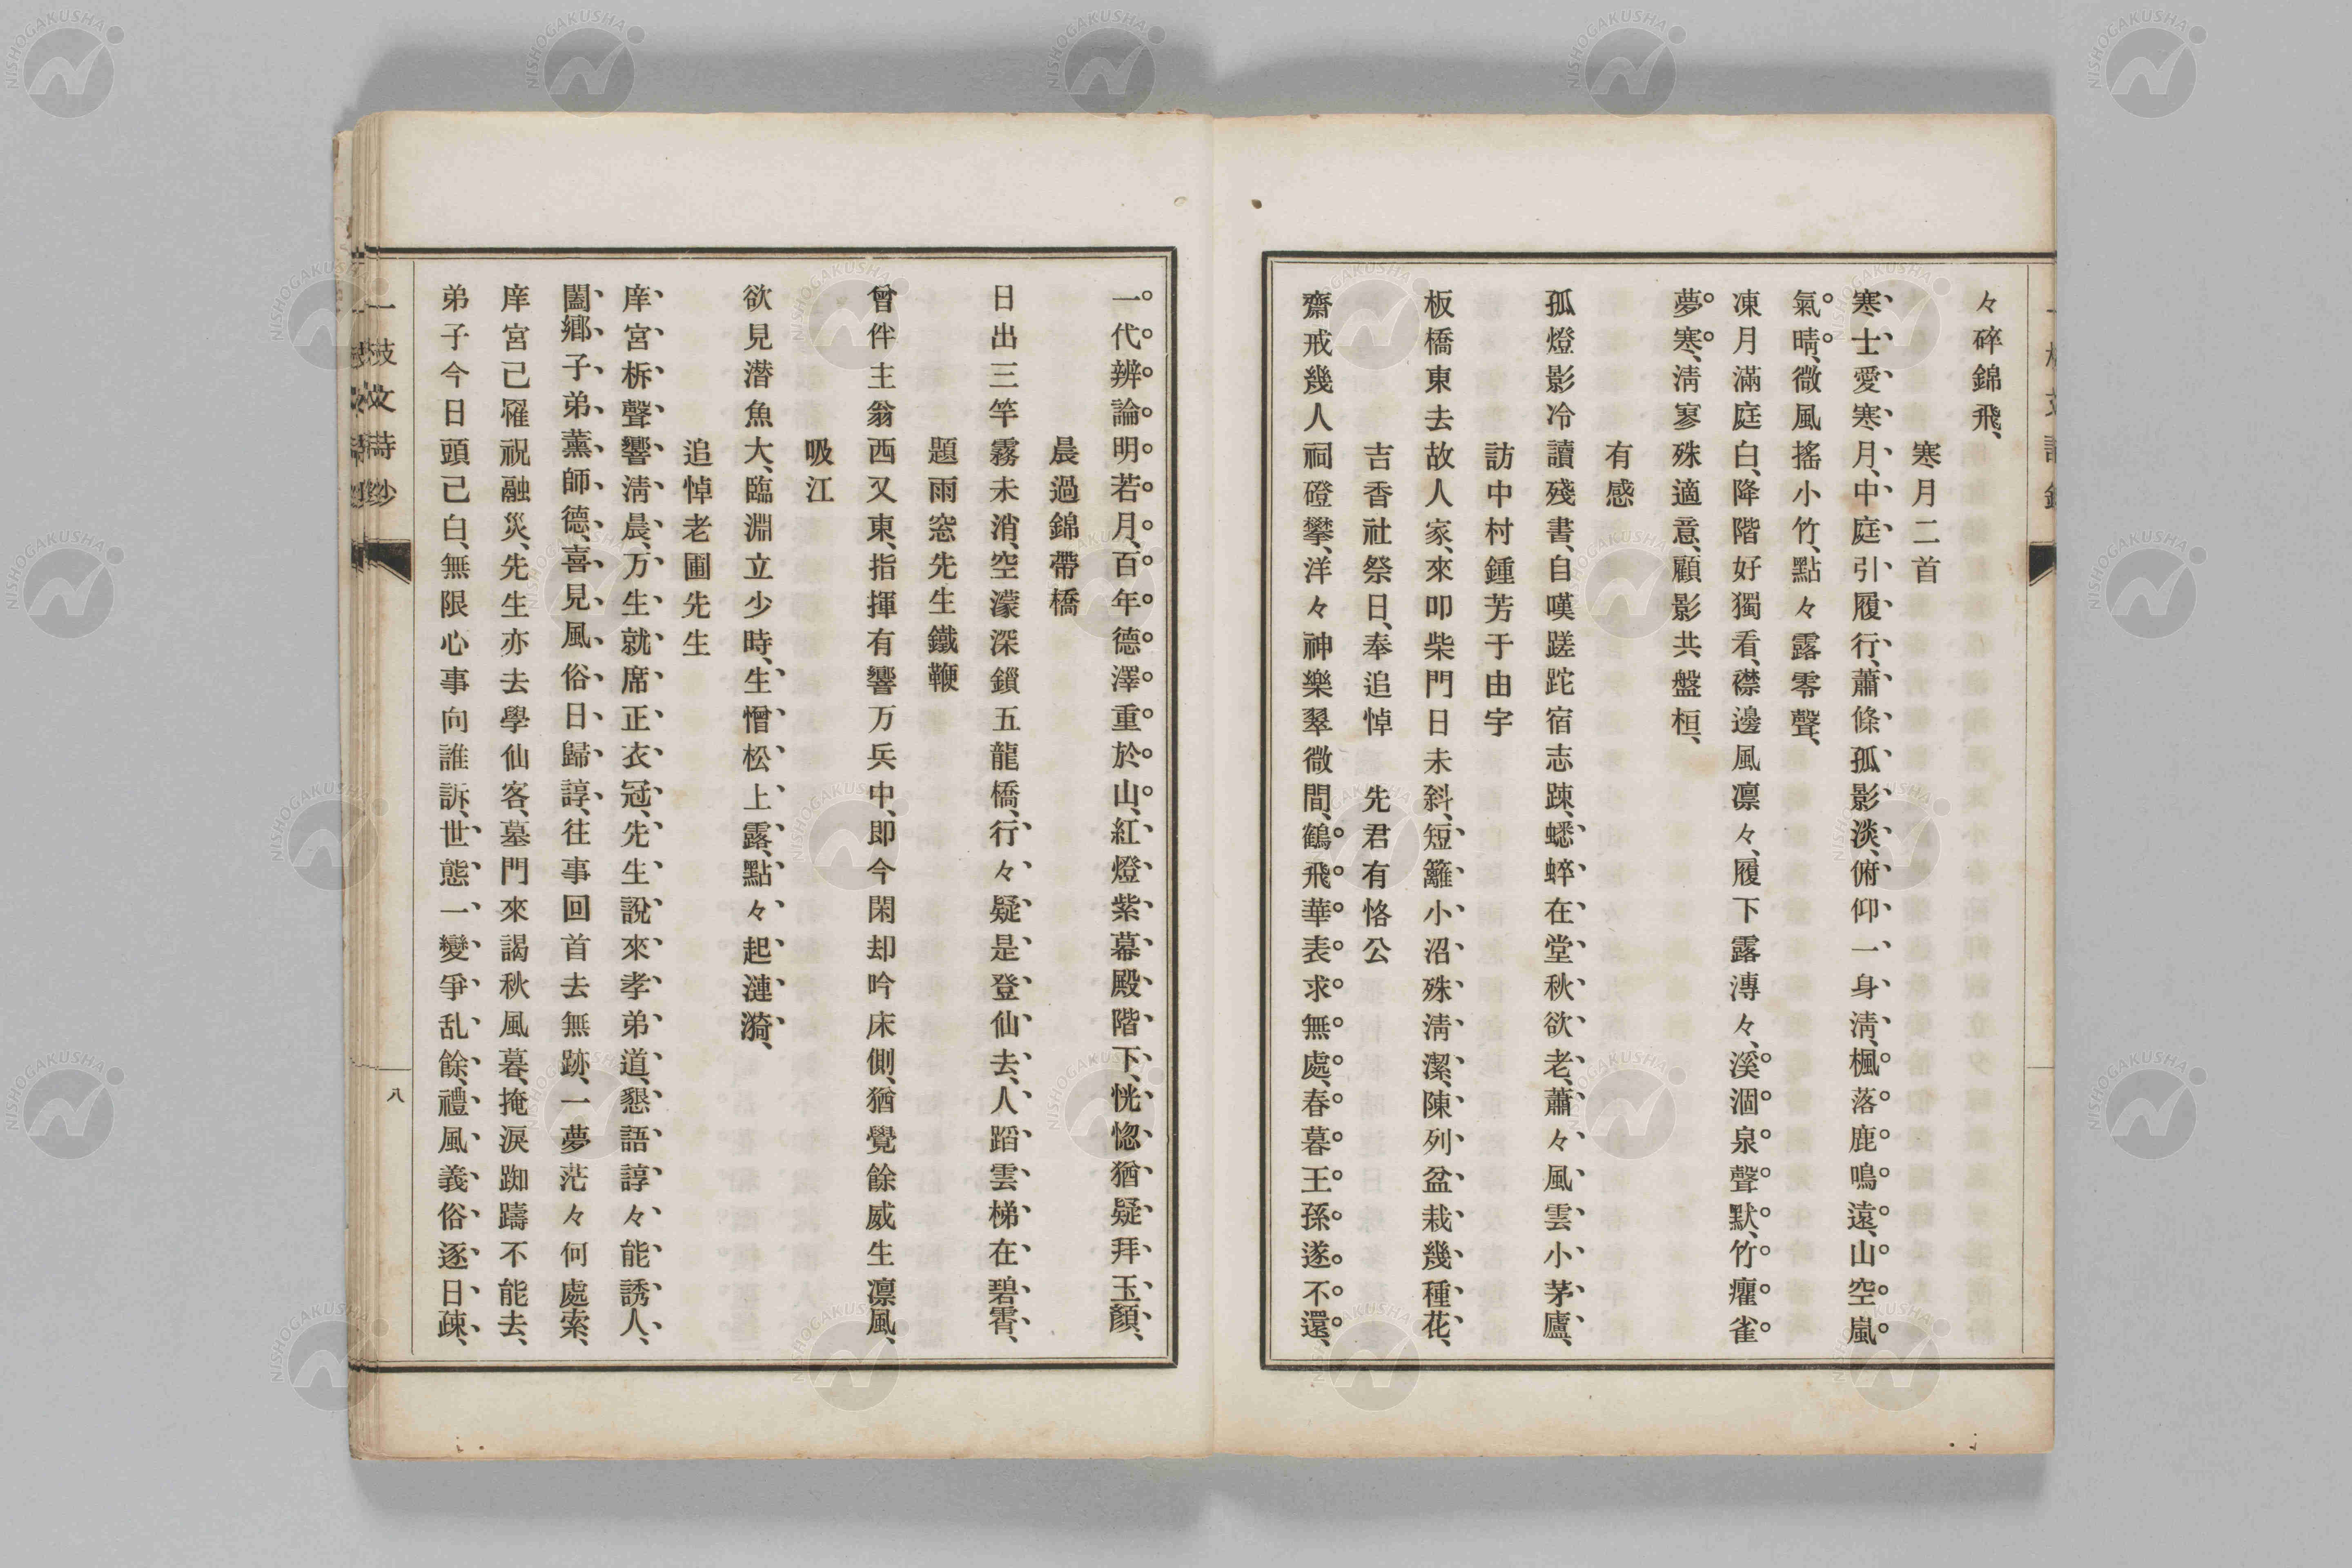 々碎錦飛、
寒月二首
寒士愛寒月、中庭引履行、蕭條孤影淡、俯仰一身淸、楓落鹿鳴遠、山空嵐
氣晴、微風搖小竹、點々露零聲、
凍月滿庭白、降階好獨看、襟邊風凛々、履下露漙々、溪涸泉聲默、竹癯雀
夢寒、淸寥殊適意、顧影共盤桓、
有感
孤燈影冷讀殘書、自嘆蹉跎宿志踈、蟋蟀在堂秋欲老、蕭々風雲小茅廬、
訪中村鍾芳于由宇
板橋東去故人家、來叩柴門日未斜、短籬小沼殊淸潔、陳列盆栽幾種花、
吉香社祭日、奉追悼　先君有恪公
齋戒幾人祠磴攀、洋々神樂翠微間、鶴飛華表求無處、春暮王孫遂不還、
一代辨論明若月、百年德澤重於山、紅燈紫幕殿階下、恍惚猶疑拜玉顏、
晨過錦帶橋
日出三竿霧未消、空濛深鎖五龍橋、行々疑是登仙去、人蹈雲梯在碧霄、
題雨窓先生鐵鞭
曾伴主翁西又東、指揮有響万兵中、即今閑却吟床側、猶覺餘威生凛風、
吸江
欲見潜魚大、臨淵立少時、生憎松上露、點々起漣漪、
追悼老圃先生
庠宮柝聲響淸晨、万生就席正衣冠、先生說來孝弟道、懇語諄々能誘人、
闔鄕子弟薰師德、喜見風俗日歸諄、往事回首去無跡、一夢茫々何處索、
庠宮已罹祝融災、先生亦去學仙客、墓門來謁秋風暮、掩淚踟躊不能去、
弟子今日頭已白、無限心事向誰訴、世態一變爭乱餘、禮風義俗逐日疎、
一枝文詩鈔
八